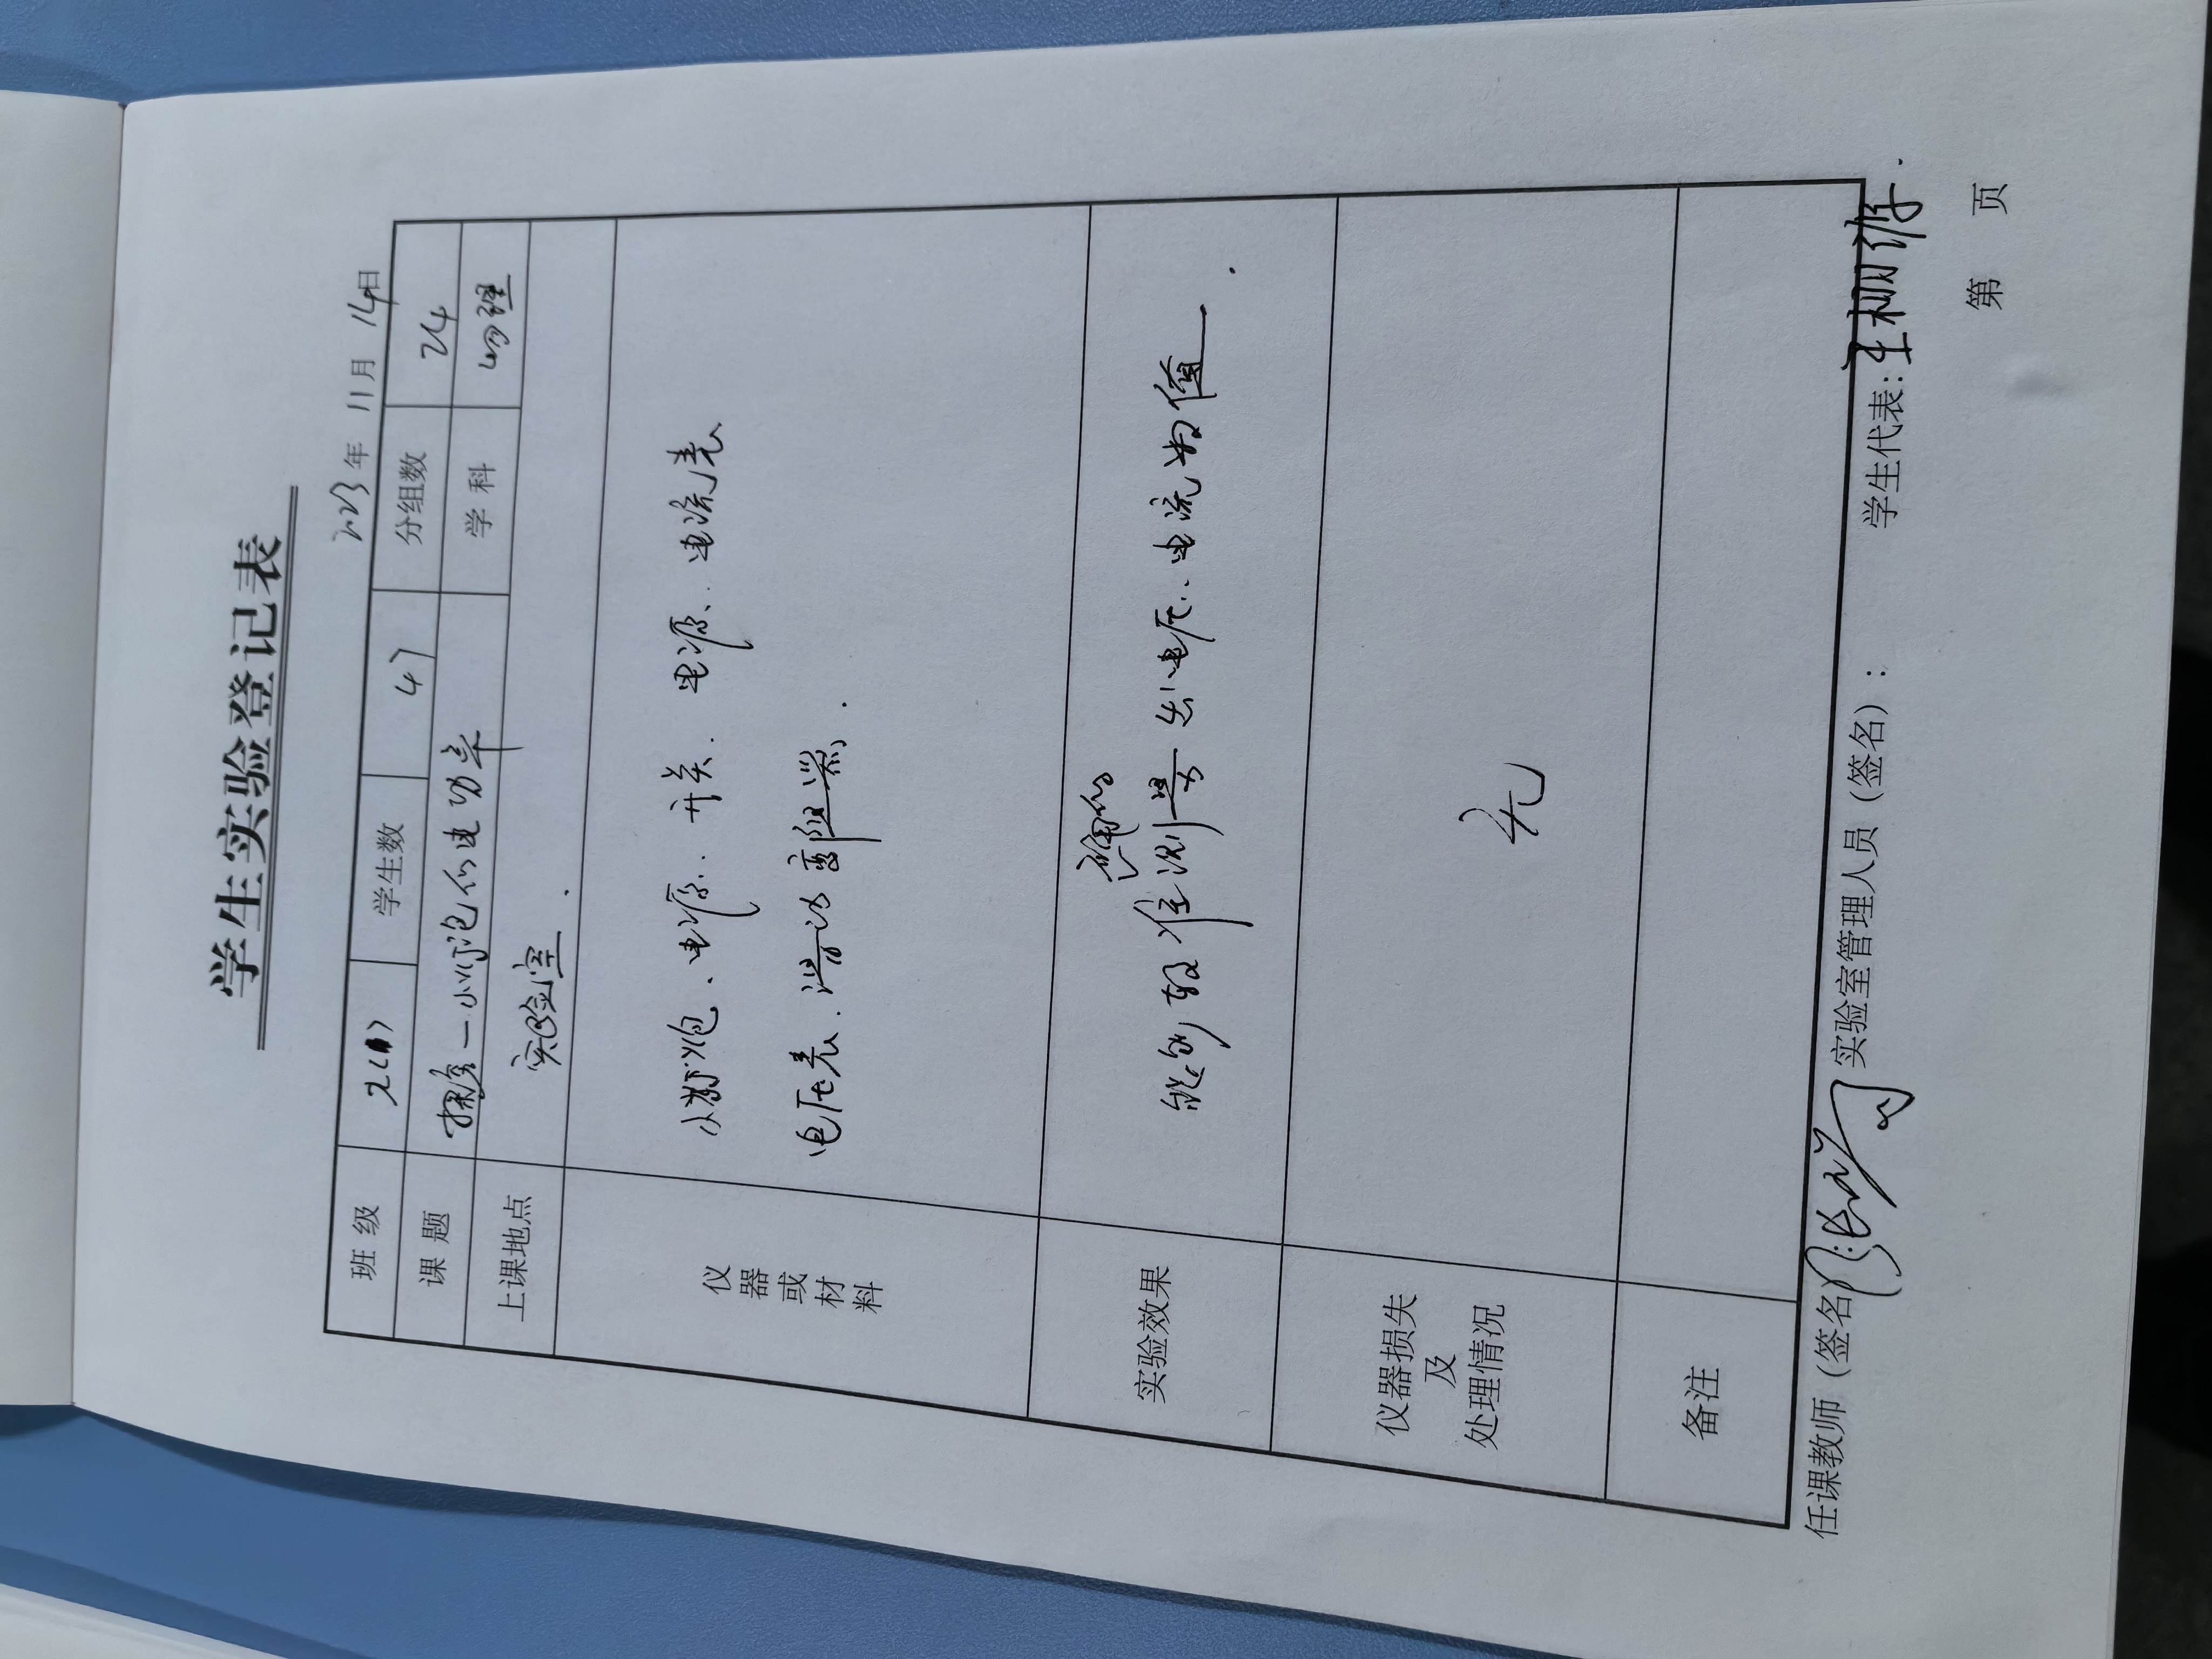 学生实验登记表
2023年 11月 14日
班 级 2(1) 学生数 47 分组数 24
课 题 探究一小灯泡的电功率 学 科 物理
上课地点 实验室.
仪器或材料 小灯泡、电源、开关、电源、电流表
电压表、滑动变阻器.
实验效果 能够较准确的测量出电压、电流的值.
仪器损失及处理情况 无
备注
任课教师（签名） 实验室管理人员（签名）： 学生代表：王
第 页